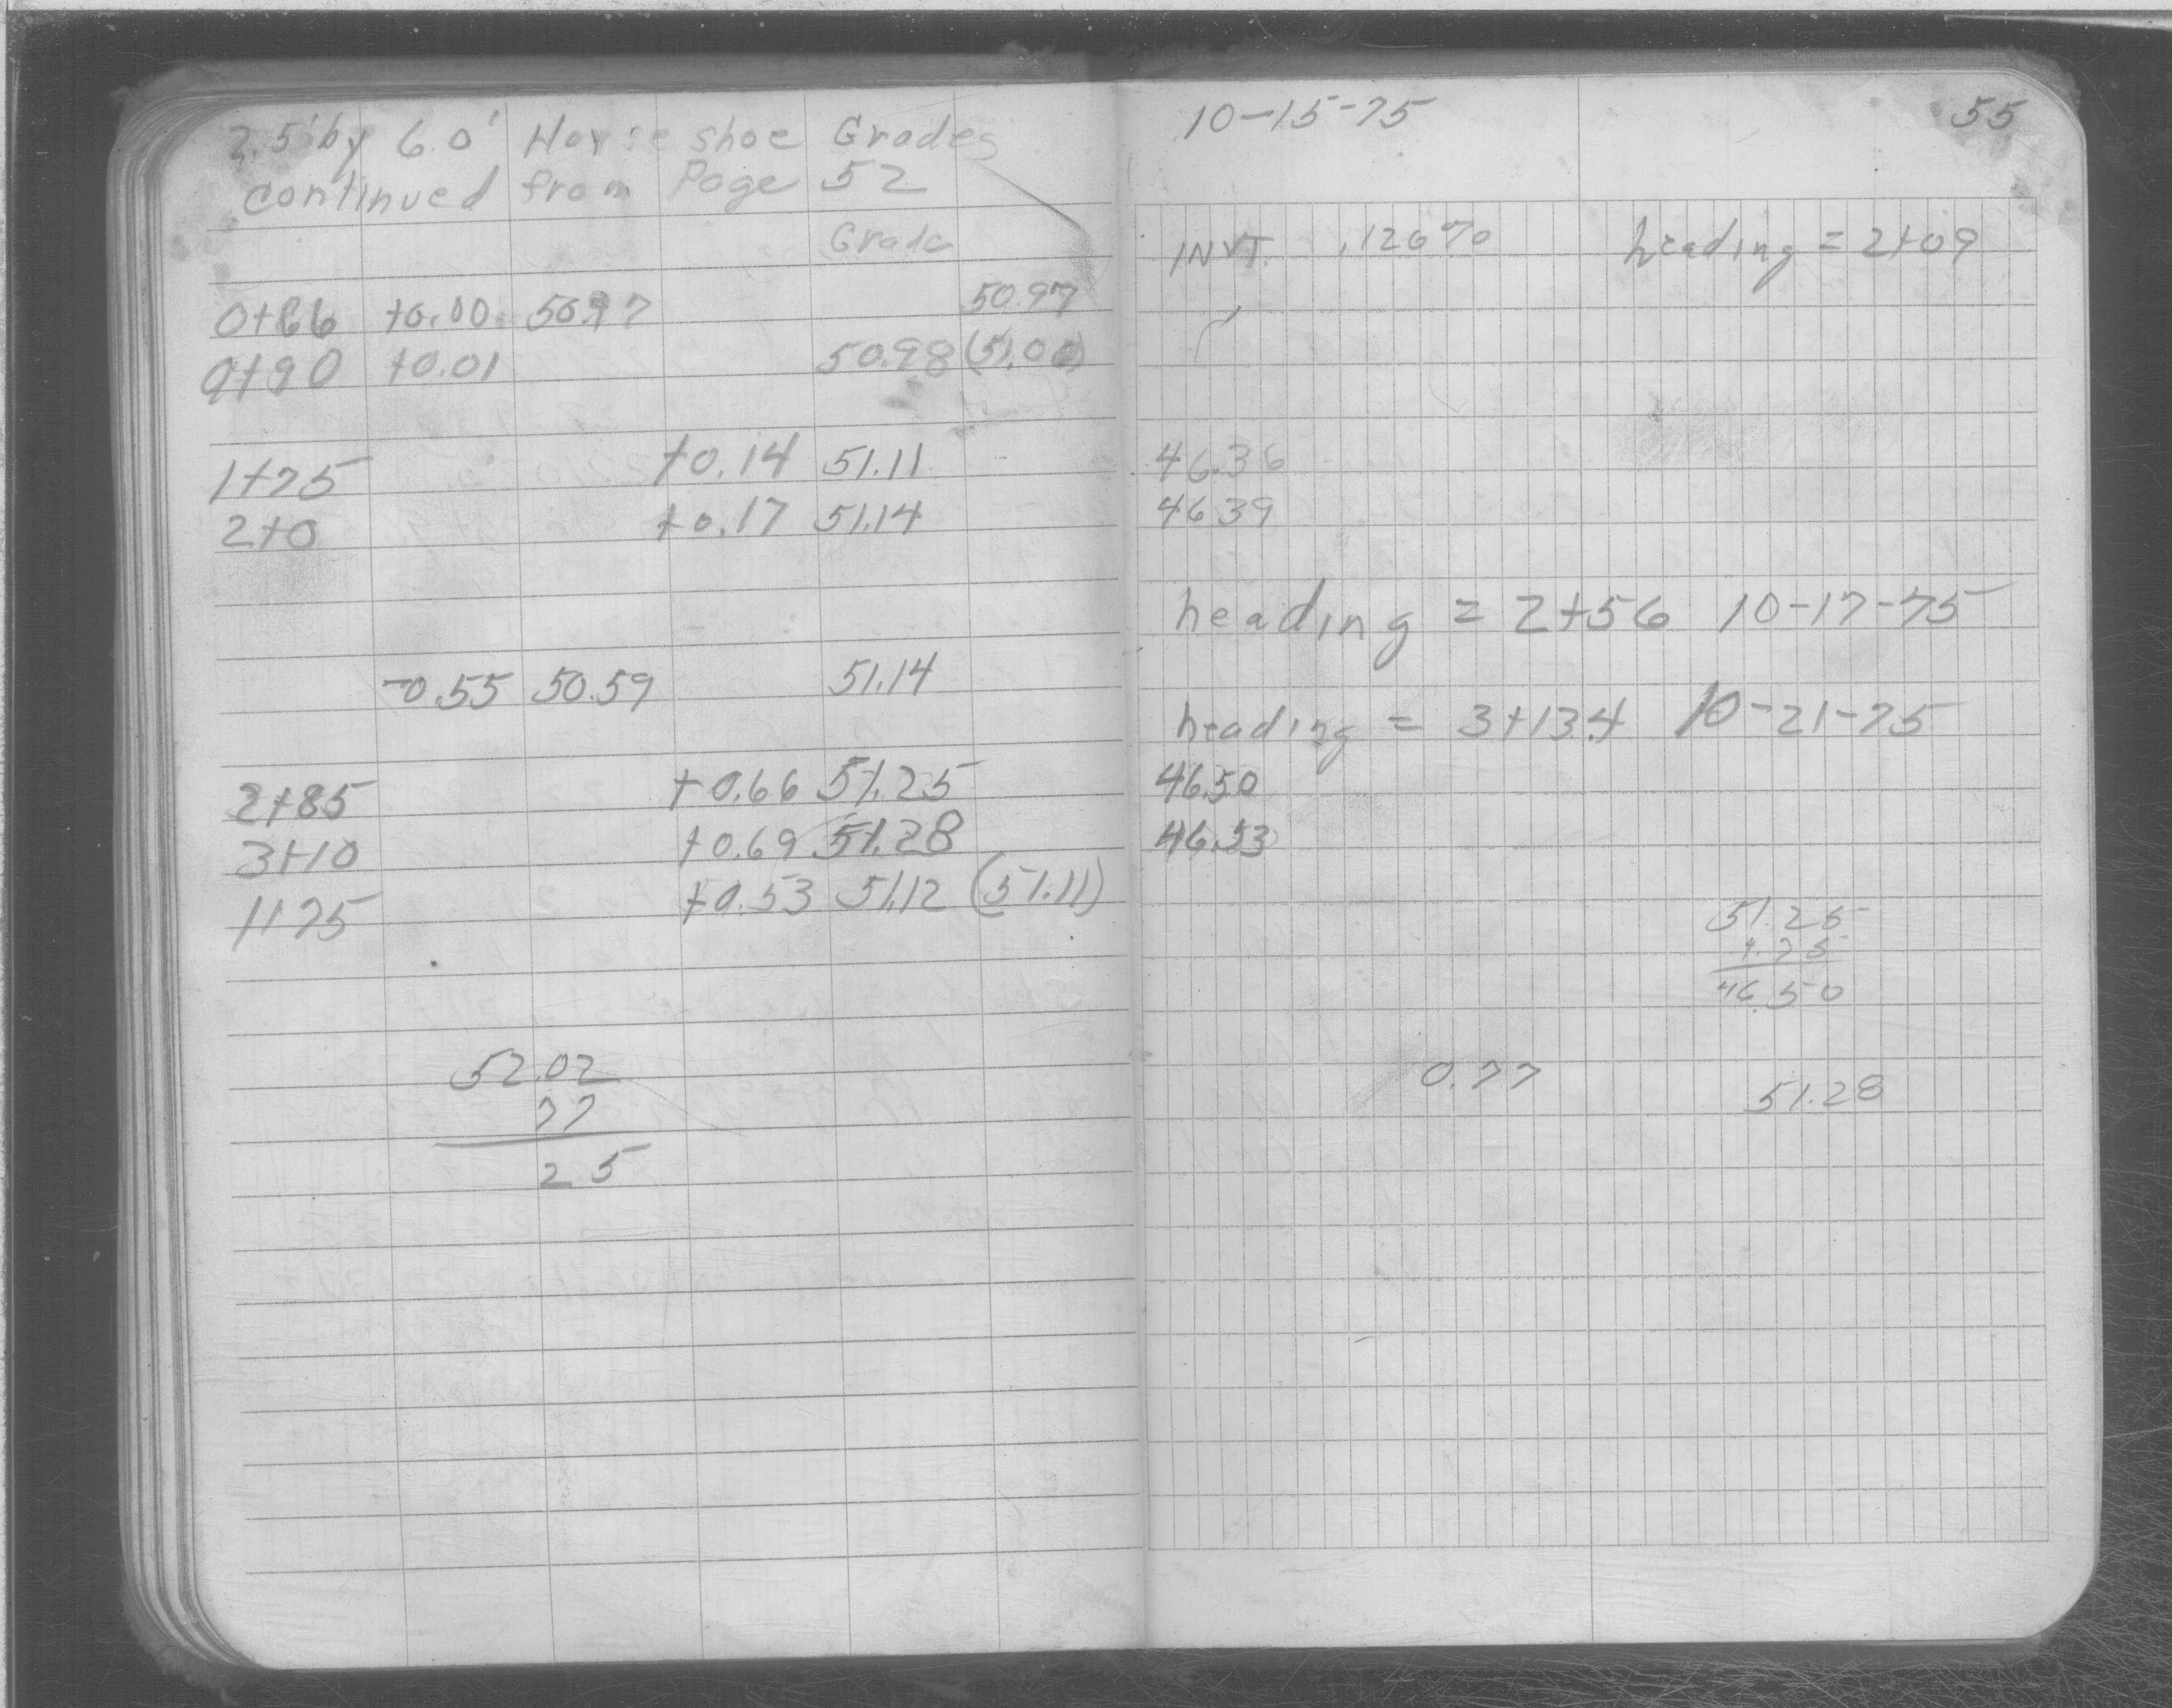 7.5' by 6.0' Horse shoe Grades
continued from Page 52
Grade
0+86 +0.00 50.97 50.97
0+90 +0.01 50.98 (51.00)
1+75 +0.14 51.11
2+0 +0.17 51.14
-0.55 50.59 51.14
2+85 +0.66 51.25
3+10 +0.69 51.28
1+75 +0.53 51.12 (51.11)
52.02
77
25
10-15-75 55
INVT. .126% heading = 2+09
46.36
46.39
heading = 2+56 10-17-75
heading = 3+13.4 10-21-75
46.50
46.53
51.25
4.75
46.50
0.77 51.28